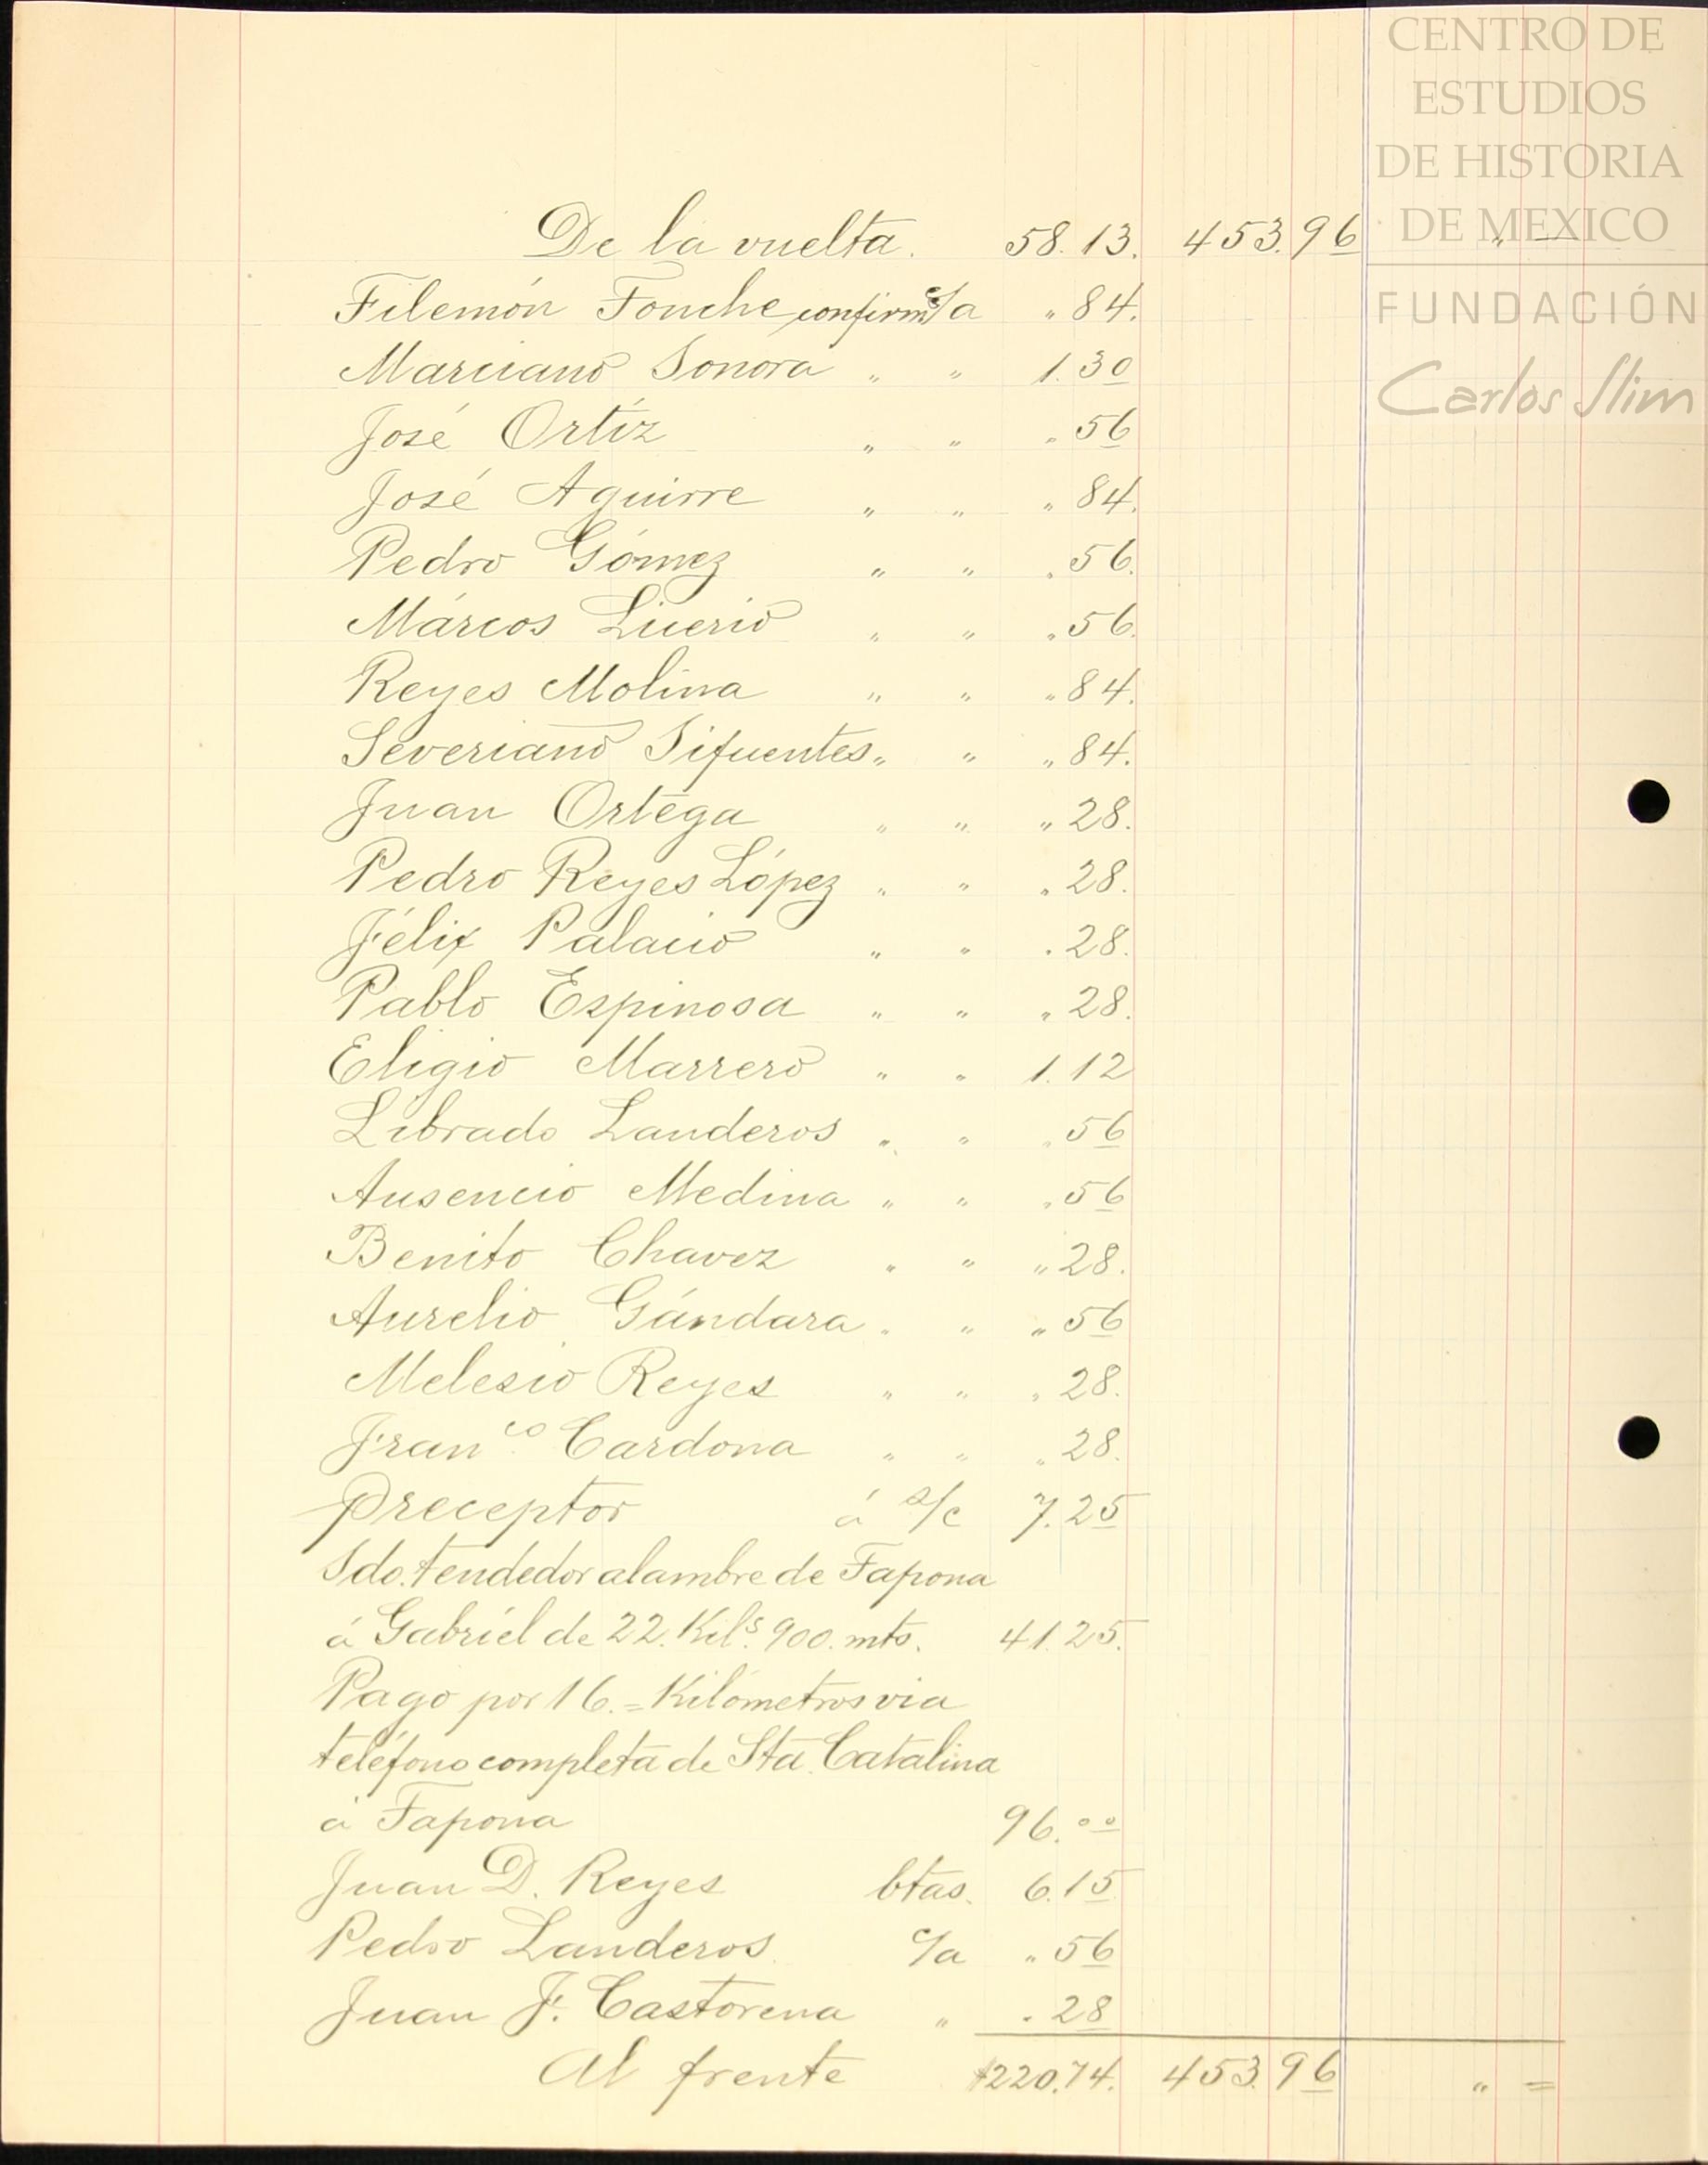 CENTRO DE
ESTUDIOS
DE HISTORIA
DE MEXICO
FUNDACIÓN
Carlos Slim
De la vuelta. 58.13. 453.96 " =
Filemón Fouche confirm c/a " 84.
Marciano Sonora " " 1.30
José Ortíz " " " 56
José Aguirre " " " 84.
Pedro Gómez " " " 56.
Márcos Licerio " " " 56.
Reyes Molina " " " 84.
Severiano Sifuentes " " " 84.
Juan Ortega " " " 28.
Pedro Reyes López " " " 28.
Félix Palacio " " " 28.
Pablo Espinosa " " " 28.
Eligio Marrero " " 1.12
Librado Landeros " " " 56
Ausencio Medina " " " 56
Benito Chavez " " " 28.
Aurelio Gándara " " " 56
Melesio Reyes " " " 28.
Franco. Cardona " " " 28.
Preceptor á s/c 7.25
Sdo. tendedor alambre de Tapona
á Gabriél de 22. Kils. 900. mts. 41.25.
Pago por 16.= Kilómetros via
teléfono completa de Sta. Catalina
á Tapona 96.00
Juan D. Reyes btas. 6.15
Pedro Landeros. c/a " 56
Juan F. Castorena " " 28
Al frente $220.74. 453.96 " =